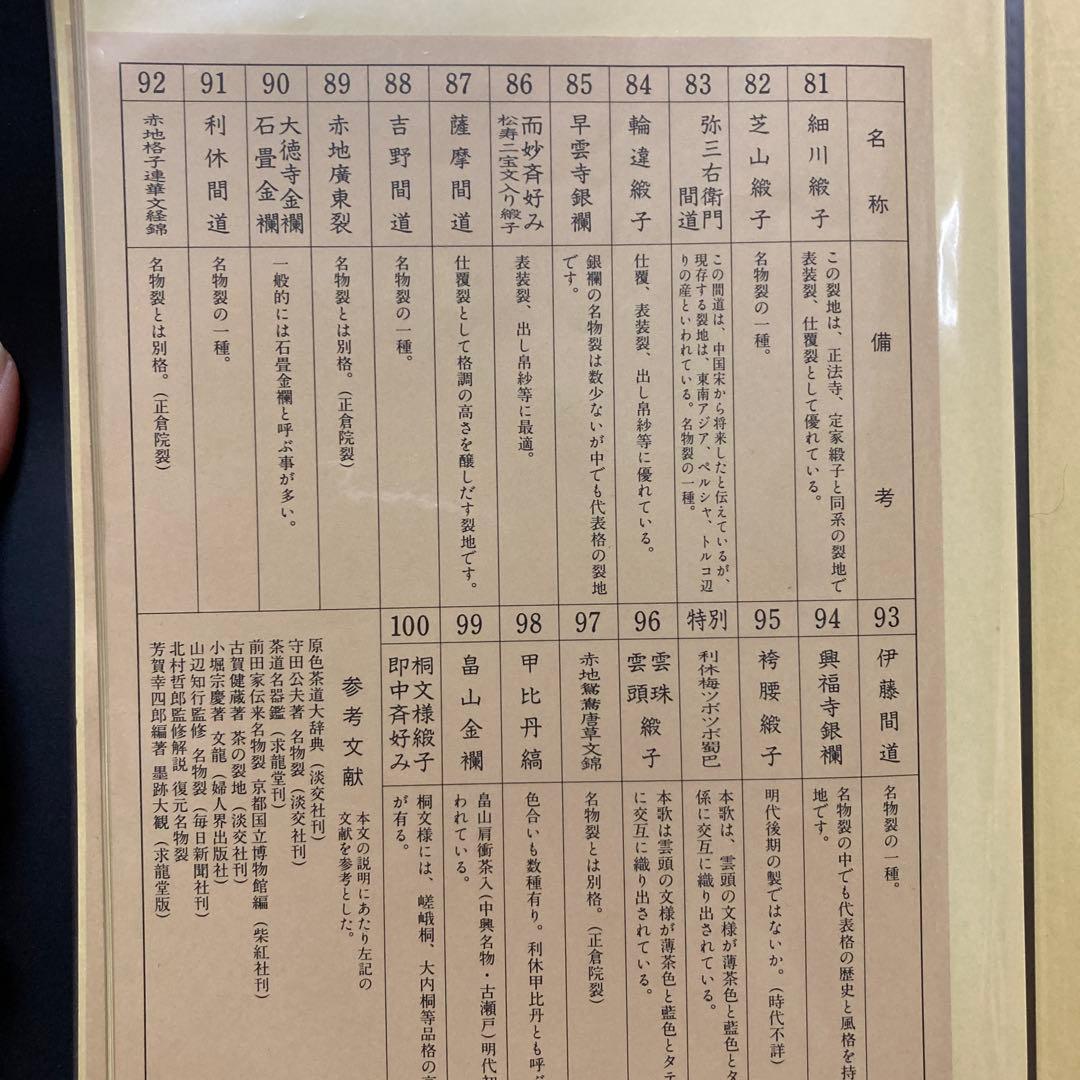 名称
備考
81
細川緞子
この裂地は、正法寺、定家緞子と同系の裂地で
表装裂、仕覆裂として優れている。
82
芝山緞子
名物裂の一種。
83
弥三右衛門
間道
この間道は、中国宋から将来したと伝えているが、
現存する裂地は、東南アジア、ペルシャ、トルコ辺
りの産といわれている。名物裂の一種。
84
輪違緞子
仕覆、表装裂、出し帛紗等に優れている。
85
早雲寺銀襴
銀襴の名物裂は数少ないが中でも代表格の裂地
です。
86
而妙斉好み
松寿二宝文入り緞子
表装裂、出し帛紗等に最適。
87
薩摩間道
仕覆裂として格調の高さを醸しだす裂地です。
88
吉野間道
名物裂の一種。
89
赤地廣東裂
名物裂とは別格。(正倉院裂)
90
大徳寺金襴
石畳金襴
一般的には石畳金襴と呼ぶ事が多い。
91
利休間道
名物裂の一種。
92
赤地格子連華文経錦
名物裂とは別格。(正倉院裂)
93
伊藤間道
名物裂の一種。
94
興福寺銀襴
名物裂の中でも代表格の歴史と風格を持
地です。
95
袴腰緞子
明代後期の製ではないか。(時代不詳)
特別
利休梅ツボツボ蜀巴
本歌は、雲頭の文様が薄茶色と藍色とタ
係に交互に織り出されている。
96
雲珠
雲頭緞子
本歌は雲頭の文様が薄茶色と藍色とタテ
に交互に織り出されている。
97
赤地鴛鴦唐草文錦
名物裂とは別格。(正倉院裂)
98
甲比丹縞
色合いも数種有り。利休甲比丹とも呼ば
99
畠山金襴
畠山肩衝茶入(中興名物・古瀬戸)明代初
われている。
100
桐文様緞子
即中斉好み
桐文様には、嵯峨桐、大内桐等品格の高
が有る。
参考文献
本文の説明にあたり左記の
文献を参考とした。
原色茶道大辞典(淡交社刊)
守田公夫著 名物裂(淡交社刊)
茶道名器鑑(求龍堂刊)
前田家伝来名物裂 京都国立博物館編(柴紅社刊)
古賀健蔵著 茶の裂地(淡交社刊)
小堀宗慶著 文龍(婦人界出版社)
山辺知行監修 名物裂(毎日新聞社刊)
北村哲郎監修解説 復元名物裂
芳賀幸四郎編著 墨跡大観(求龍堂版)